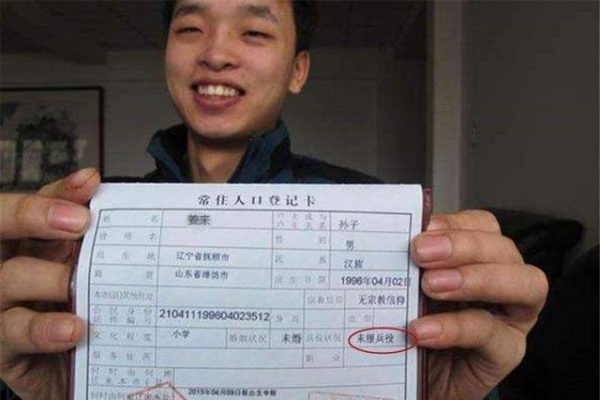 常住人口登记卡
姓名 姜来 户主或与户主关系 孙子
曾用名 性别 男
出生地 辽宁省抚顺市 民族 汉族
籍贯 山东省潍坊市 出生日期 1996年04月02日
本市(县)其他住址 宗教信仰 无宗教信仰
公民身份证件编号 210411199604023512 身高 血型
文化程度 小学 婚姻状况 未婚 兵役状况 未服兵役
服务处所 职业
何时由何地迁来本市(县)
2015年04月09日 出生申报